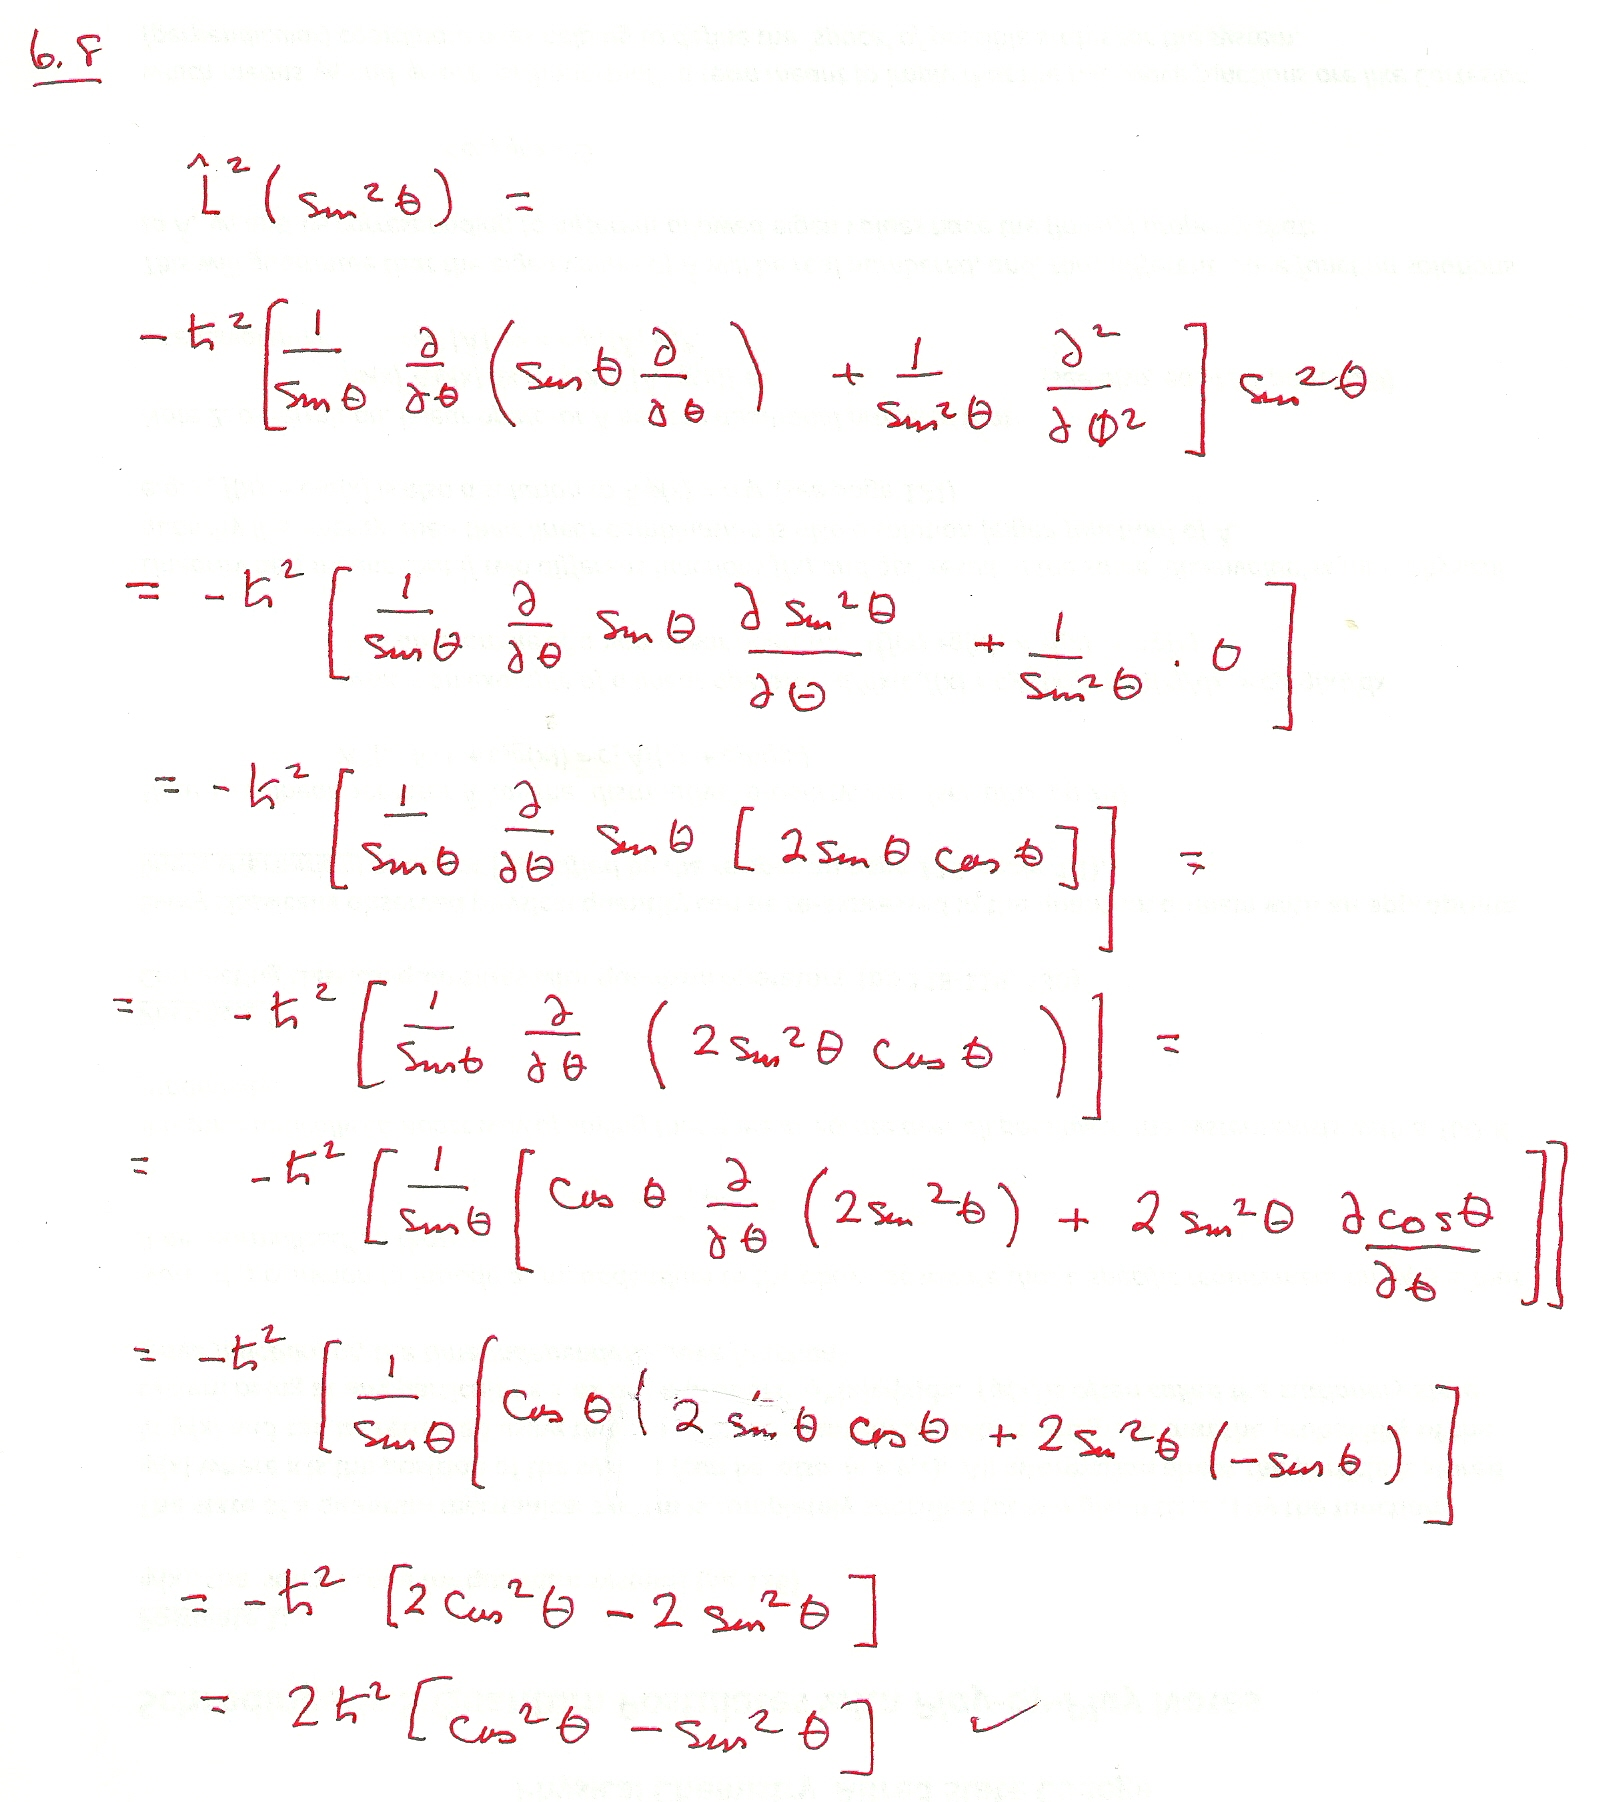 6.8
L̂² (sin²θ) =
-ħ² [ 1/sinθ ∂/∂θ ( sinθ ∂/∂θ ) + 1/sin²θ ∂²/∂φ² ] sin²θ
= -ħ² [ 1/sinθ ∂/∂θ sinθ ∂sin²θ/∂θ + 1/sin²θ · 0 ]
= -ħ² [ 1/sinθ ∂/∂θ sinθ [ 2 sinθ cosθ ] ] =
= -ħ² [ 1/sinθ ∂/∂θ ( 2 sin²θ cosθ ) ] =
= -ħ² [ 1/sinθ [ cosθ ∂/∂θ ( 2 sin²θ ) + 2 sin²θ ∂cosθ/∂θ ] ]
= -ħ² [ 1/sinθ [ cosθ ( 2 sinθ cosθ + 2 sin²θ (-sinθ) ]
= -ħ² [ 2 cos²θ - 2 sin²θ ]
= 2ħ² [ cos²θ - sin²θ ] ✓